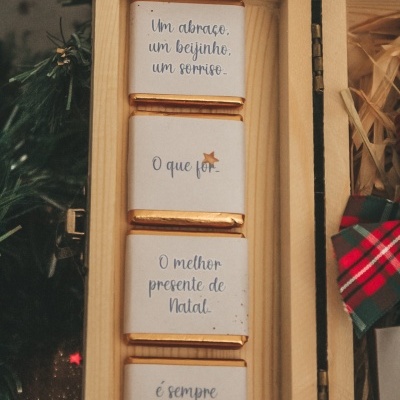 Um abraço,
um beijinho,
um sorriso...
O que for...
O melhor
presente de
Natal...
é sempre